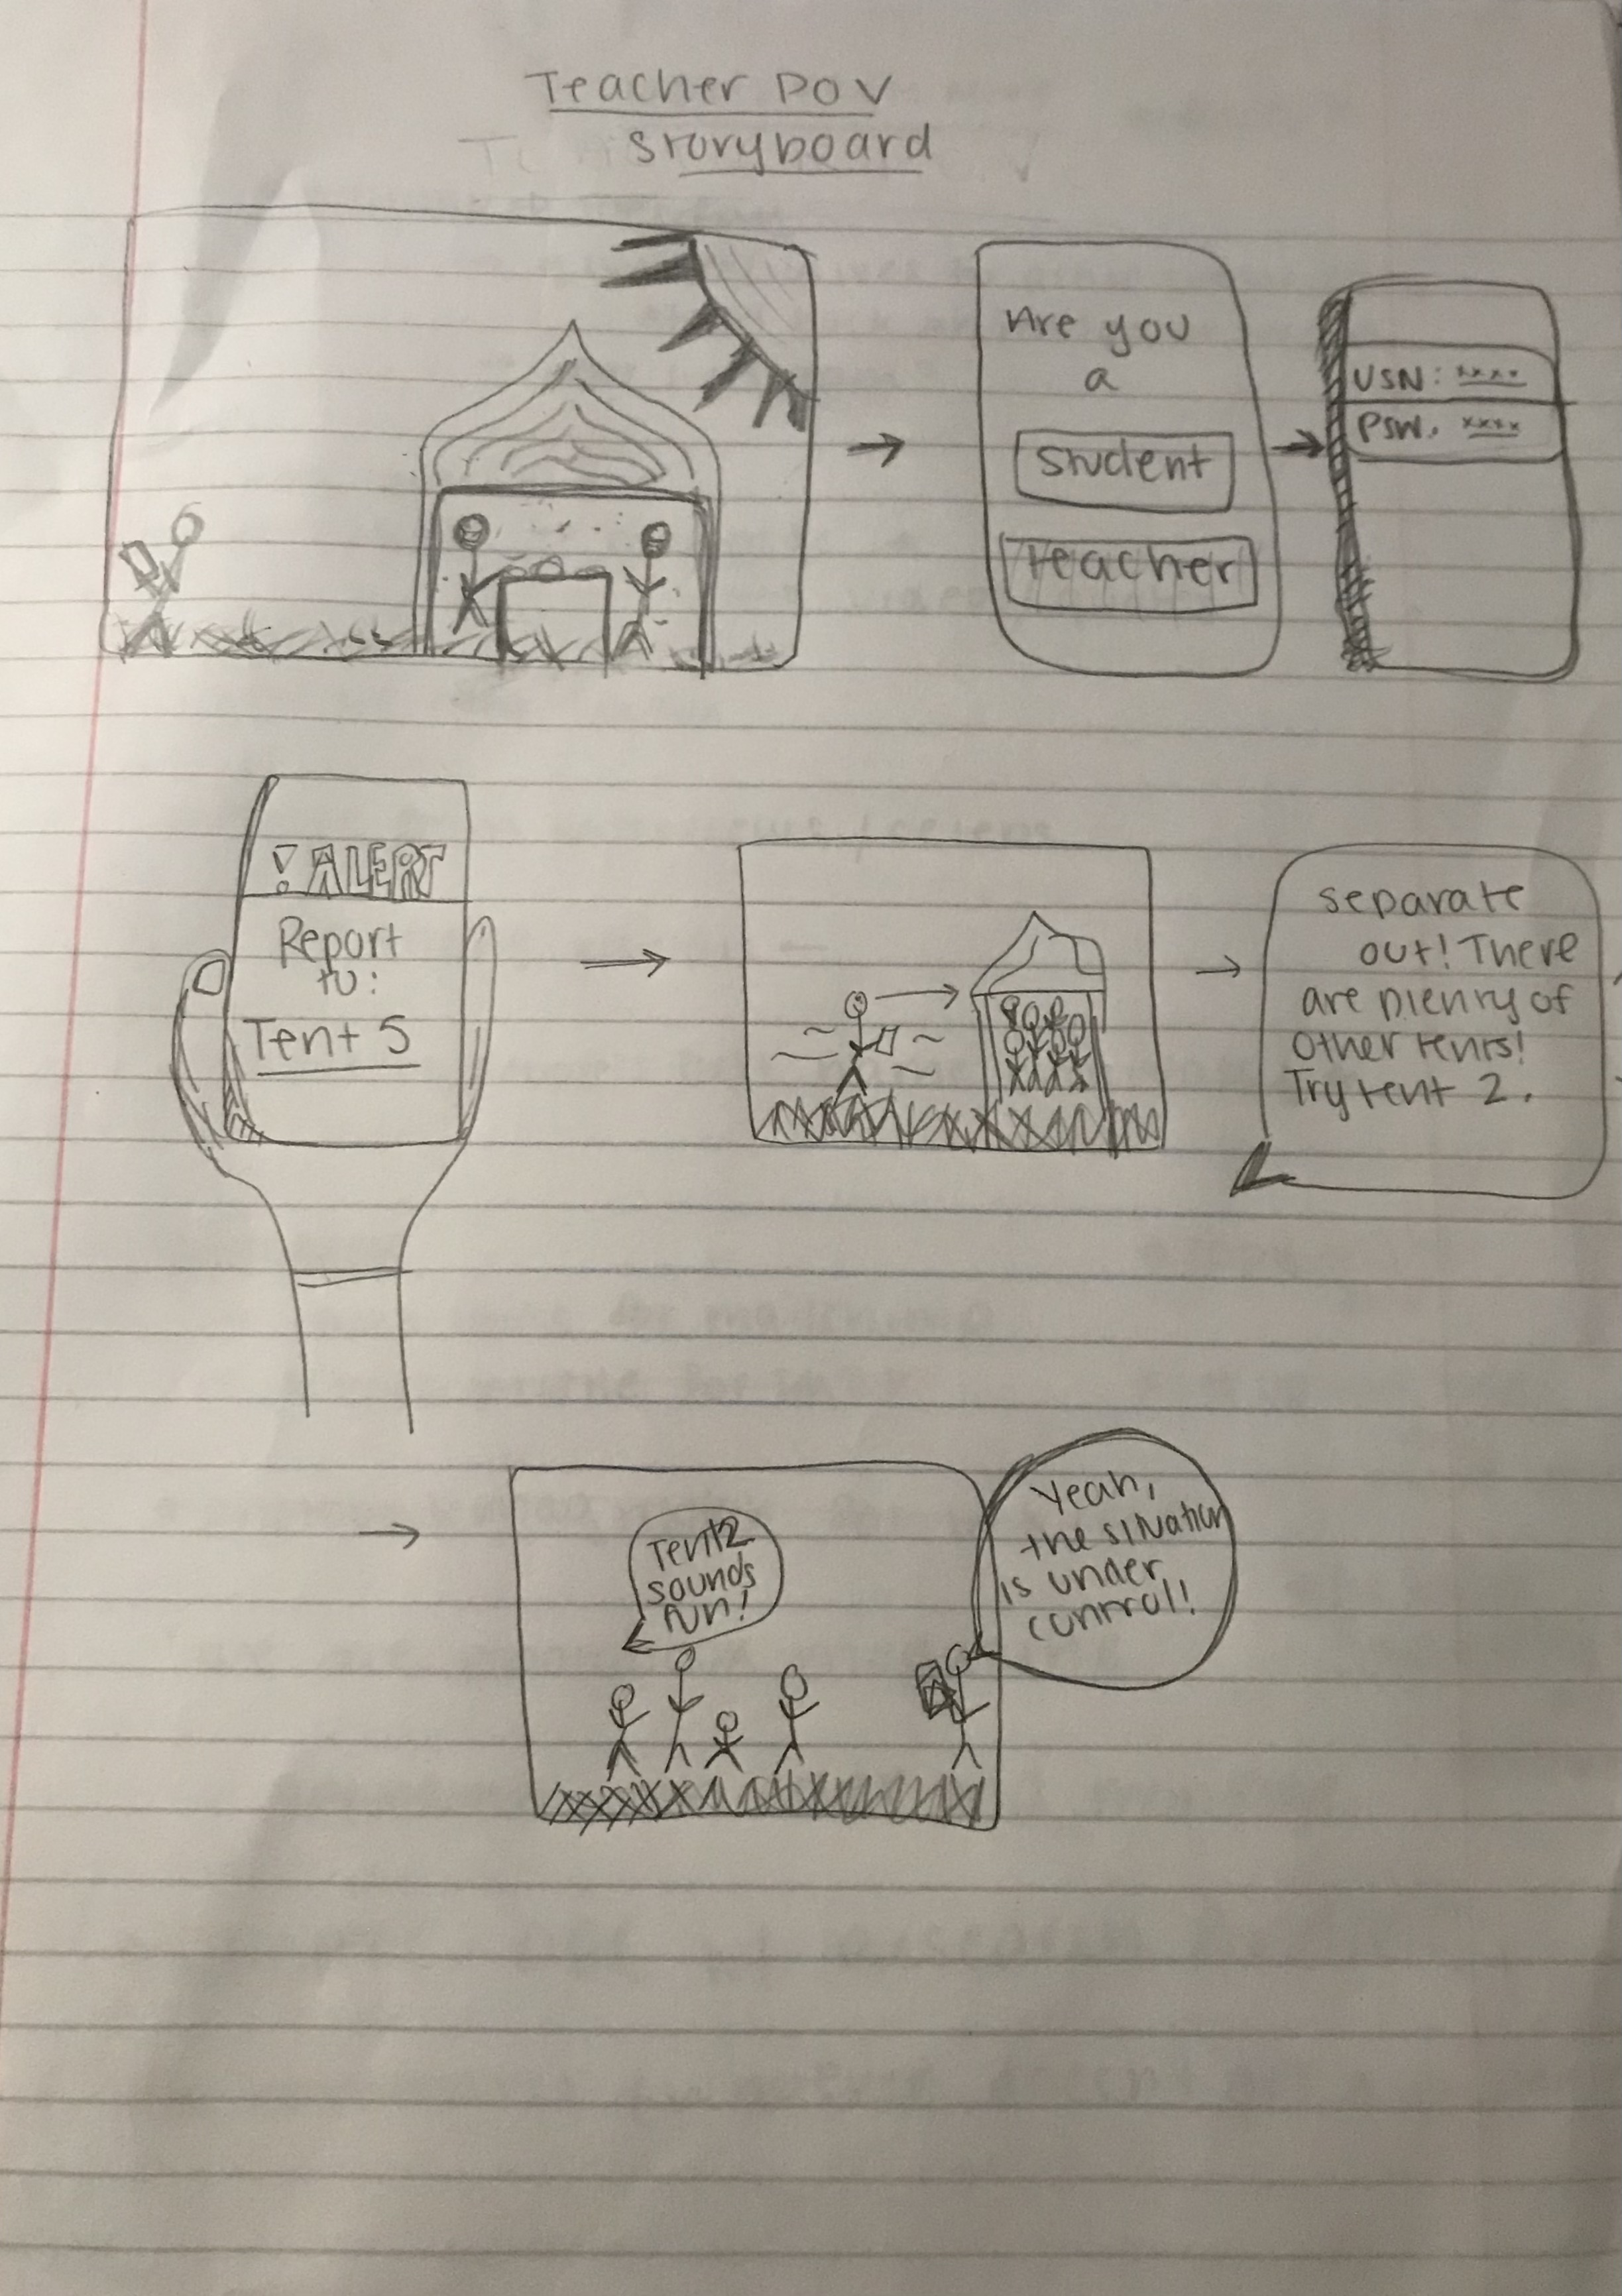 Teacher POV
storyboard
Are you
a
Student
Teacher
USN: xxxx
PSW. xxxx
! ALERT
Report
to:
Tent 5
separate
out! There
are plenty of
other tents!
Try tent 2.
Tent 2
sounds
fun!
Yeah,
the situation
is under
control!